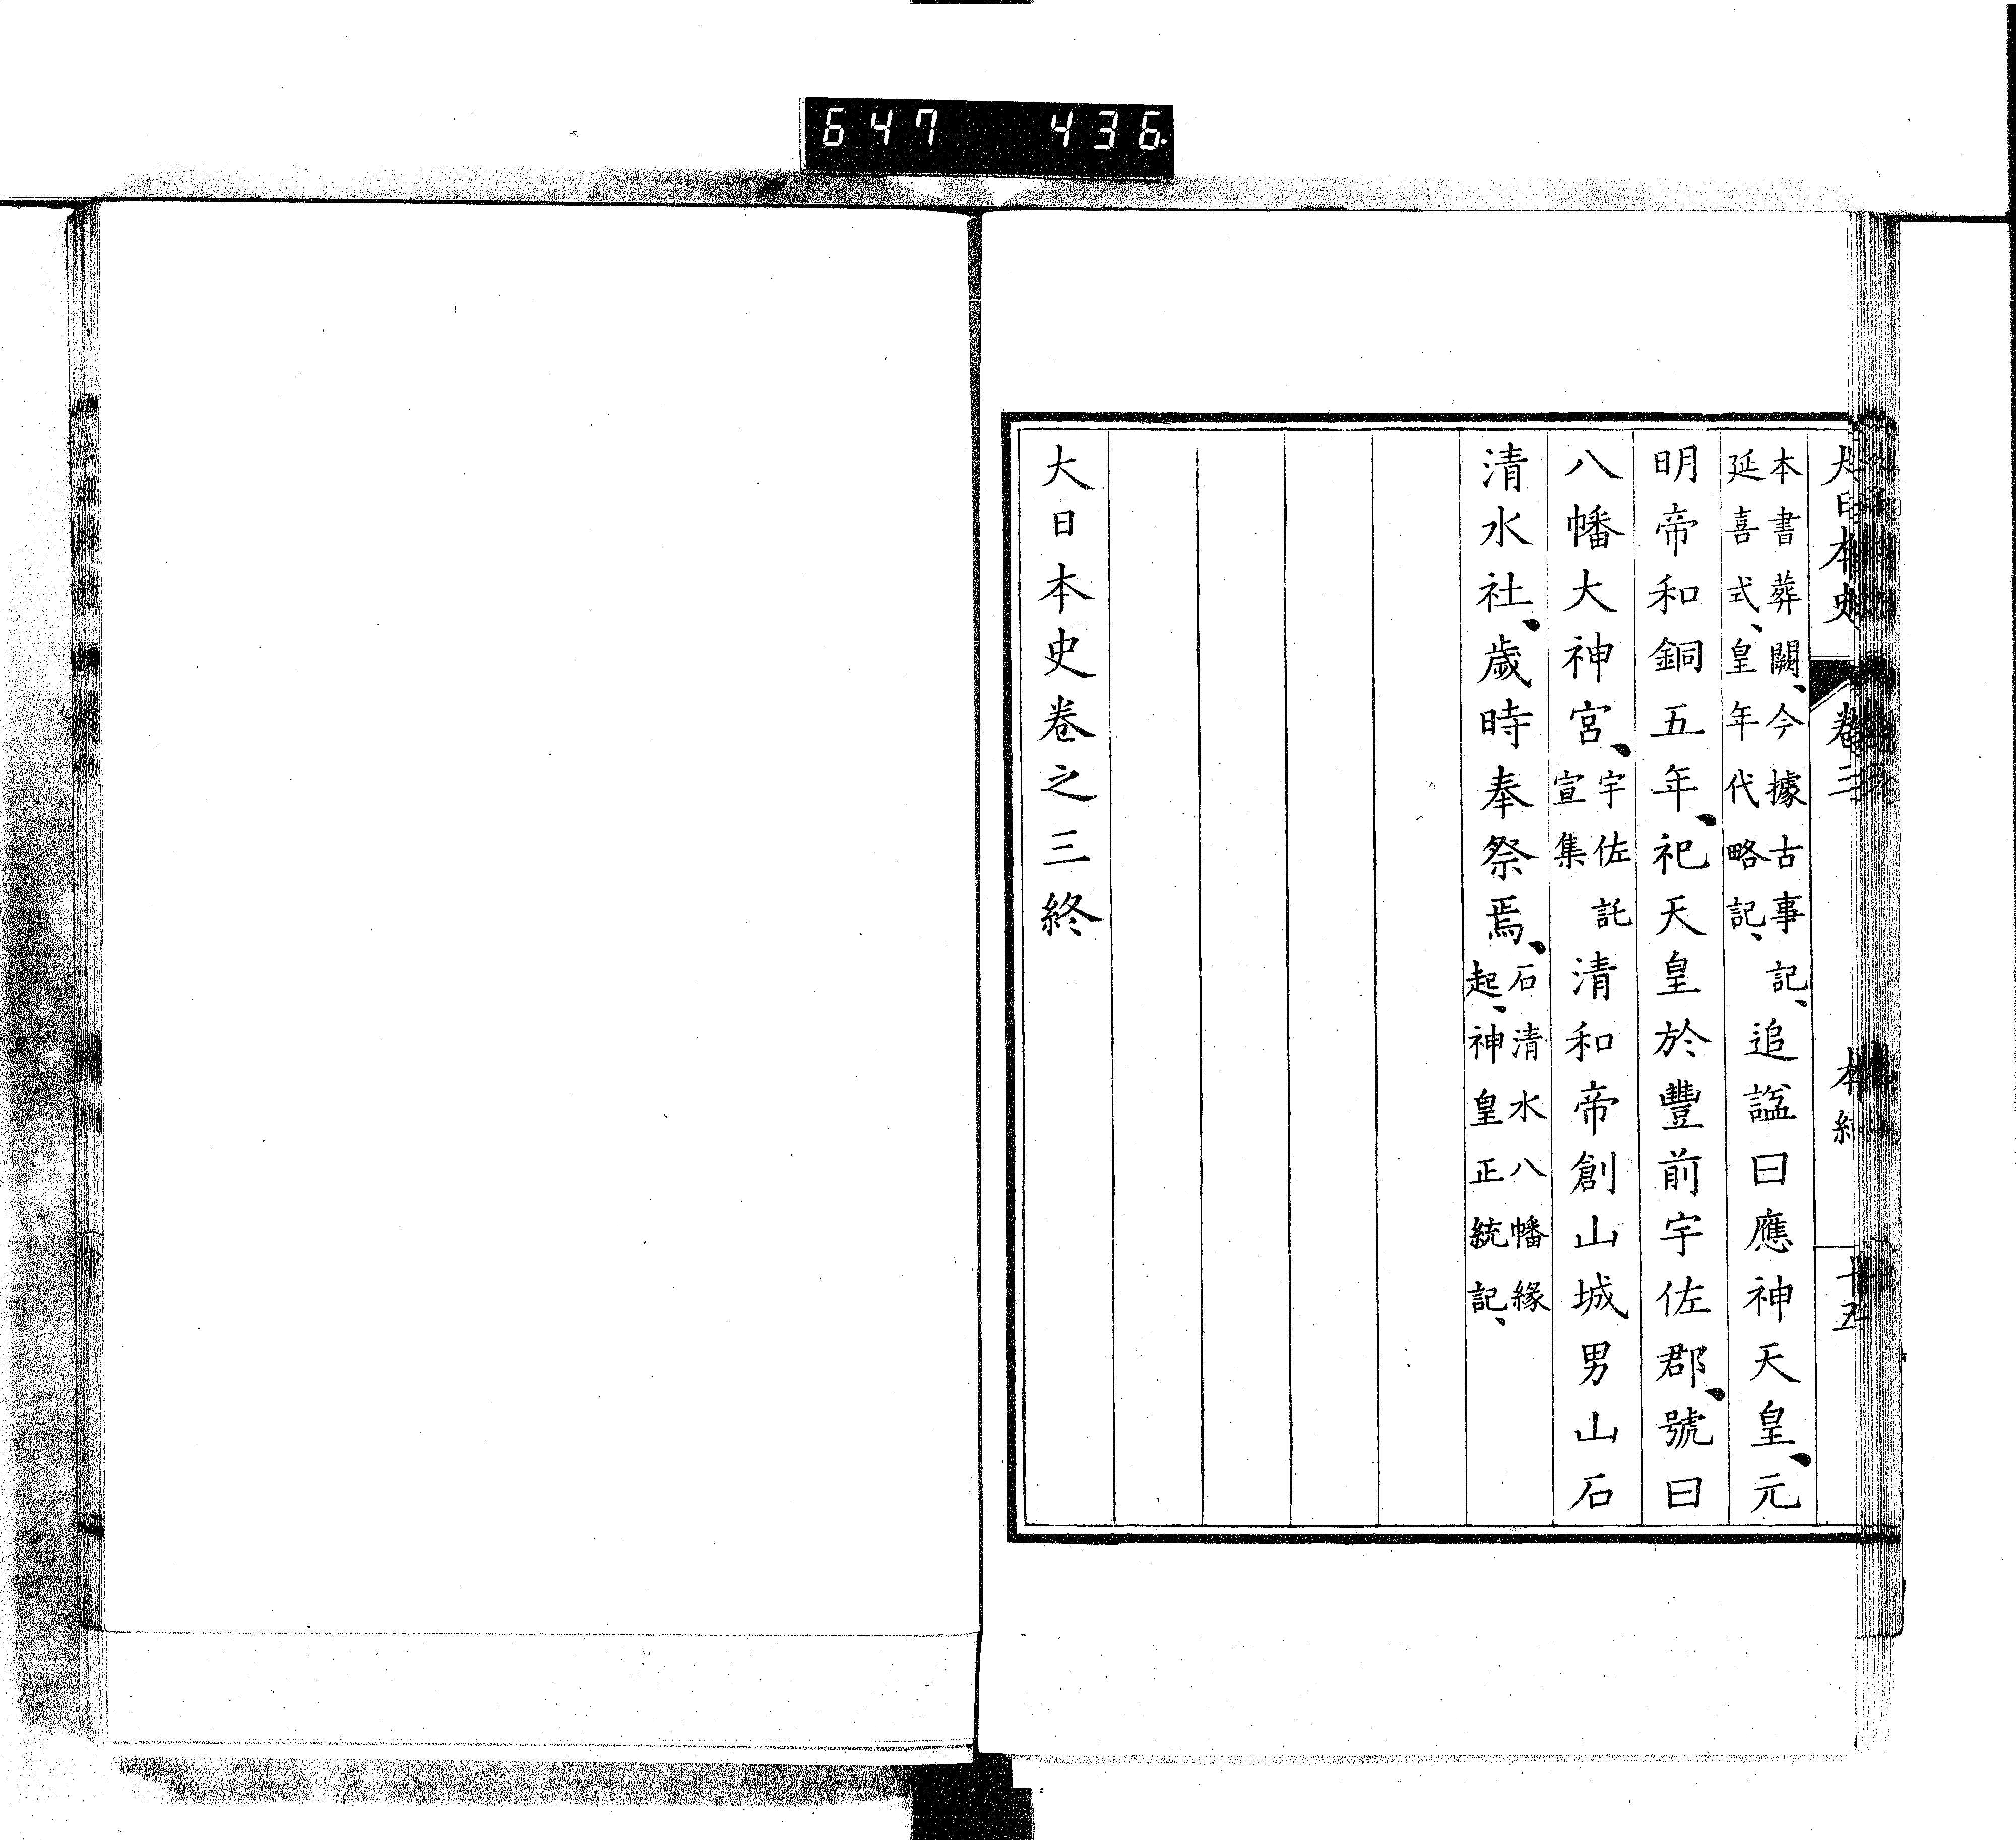 647 436
大日本史 卷三 本紀 十五
本書葬闕、今據古事記、
延喜式、皇年代略記、
追諡曰應神天皇、元
明帝和銅五年、祀天皇於豐前宇佐郡、號曰
八幡大神宮、
宇佐託
宣集
清和帝創山城男山石
清水社、歲時奉祭焉、
石清水八幡緣
起、神皇正統記、
大日本史卷之三終